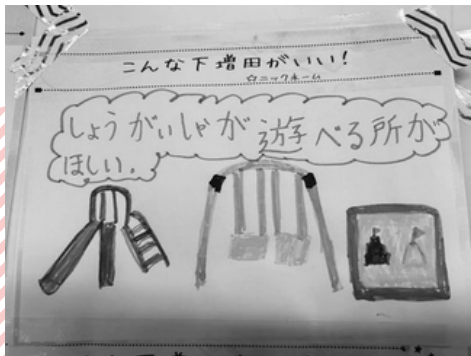 こんな下増田がいい!
☆ニックネーム
しょうがいしゃが遊べる所が
ほしい。